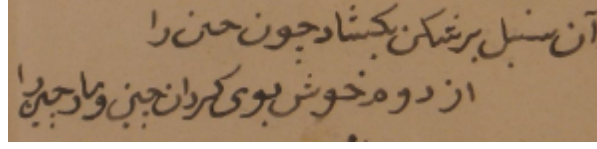 آن سنبل پرشکن بکشاد چون چین را
از دوم خوش بوی کردان چین و ماچین را